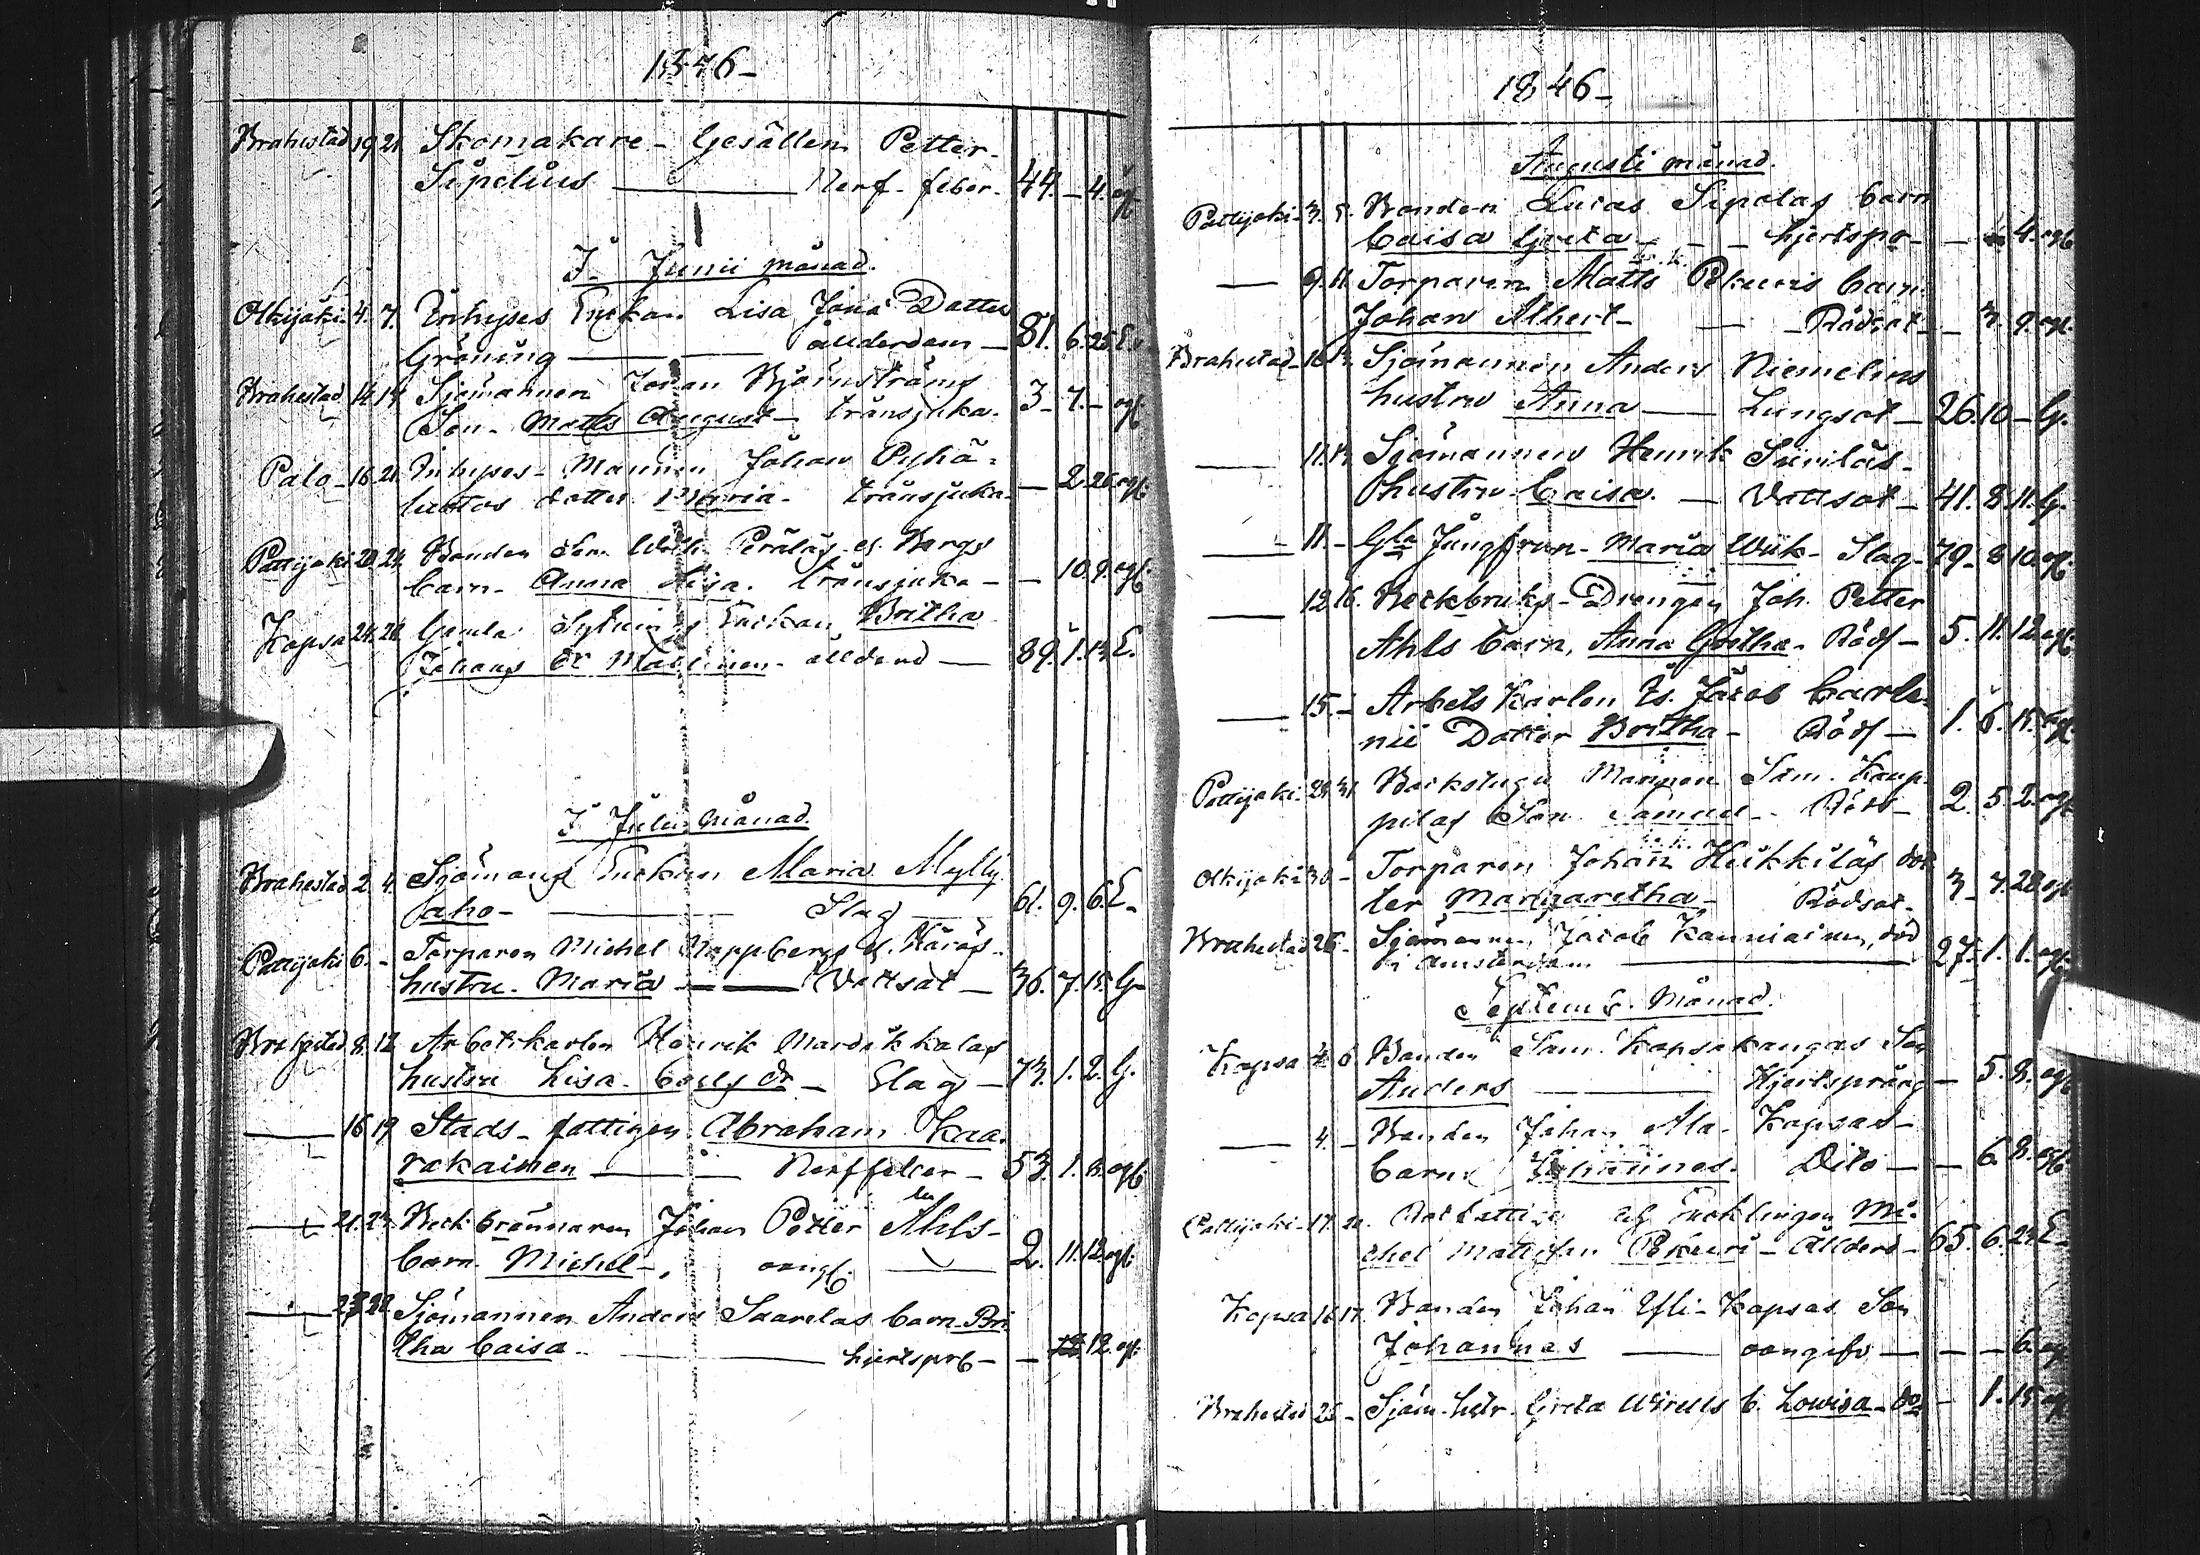 1846
Brahestad 19. 21. Skomakare-Gesällen Petter
Sipelius Nerf-feber 44. - 4. ogf
I Junii månad.
Olkijoki 4. 7. Inhyses Enkan Lisa Johs Dotter
Gröning ålderdom 81. 6. 25. E.
Brahestad 14. 14. Sjömannen Johan Björnströms
Son Matts August transjuka 3. 7. - ogf
Palo 16. 21. Inhyses-Mannen Johan Pyhä-
luotos dotter Maria transjuka - 2. 26. ogf
Pattijoki 20. 24. Bonden Perälas Bergs
barn Anna Lisa transjuka - 10. 9. ogf
Kopsa 24. 28. Gamla Enkan Britha
Johans Dr Matlinen ålderd 89. 1. 13. E.
I Julii månad
Brahestad 2. 4. Sjömans Enkan Maria Mylly-
aho Slag 61. 9. 6. E.
Pattijoki 6. - Torparen Michel Nappbergs
hustru Maria Vattsot 36. 7. 15. G.
Brahestad 8. 12. Arbetskarlen Henrik Mardikkalas
hustru Lisa Carls dr Slag 73. 1. 2. G.
16. 19. Stads-fattigen Abraham Kaa-
rakainen Nerffeber 53. 1. 6. ogf
21. 24. Beckbrännaren Johan Petter Ahls
barn Michel oangf. 2. 11. 12. ogf
27. 28. Sjömannen Anders Saarelas barn Bri-
tha Caisa hjertspr - - 12. ogf
1846
Augusti månad.
Pattijoki 3. 5. Bonden Lucas Sipolas barn
Caisa Greta hjertspr - - 4. ogf
9. 11. Torparen Matts Pekuris barn
Johan Albert Rödsot - 3. 9. ogf
Brahestad 10. 13. Sjömannen Anders Niemelins
hustru Anna Lungsot 26. 10. - G.
11. 13. Sjömannen Henrik Siirilas
hustru Caisa Vattsot 41. 8. 11. G.
11. - Gla Jungfrun Maria Wiik Slag 79. 8. 10. ogf
12. 16. Beckbruks-Drengen Joh. Petter
Ahls barn, Anna Gretha Röds 5. 11. 12. ogf
15. - Arbets Karlen Is. Jacob Carle-
nii Dotter Britha Röds 1. 6. 15. ogf
Pattijoki 29. 31. Backstugu Mannen Sam. Kaup-
pilas Son Samuel Röds 2. 5. 2. ogf
Olkijoki 30. - Torparen Johan Heikkiläs dot-
ter Margaretha Rödsot 3. 7. 28. ogf
Brahestad 26. - Sjömannen Jacob Kanniainen, död
i Amsterdam 27. 1. 1. ogf
Septemb. Månad.
Kopsa 4. 6. Bonden Sam. Kopsakangas Son
Anders Hjertsprång - 5. 8. ogf
4. - Bonden Johan Ala-Kopsas
barn Johannes Dito - 6. 8. ogf
Pattijoki 17. 20. Enklingen Mi-
chel Mattsson Pekuri Ålderd 65. 6. 24. E.
Kopsa 16. 17. Bonden Johan Yli-Kopsas Son
Johannes oangifv - - 6. ogf
Brahestad 25. - Sjöm. hstr. Greta Wirells b. Lowisa do - 1. 15. ogf